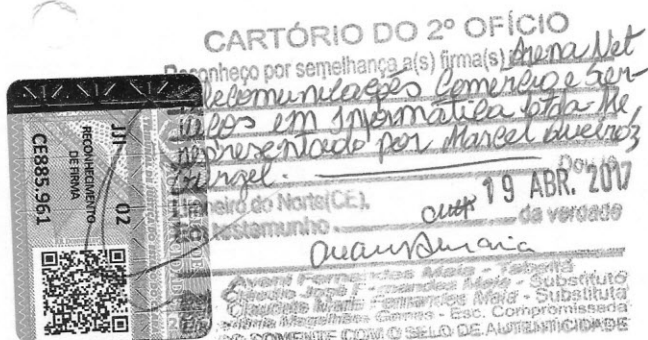 CARTÓRIO DO 2º OFÍCIO
Reconheço por semelhança a(s) firma(s) Arena Net
Telecomunicações Comércio e Ser-
viços em Informática Ltda Me,
representado por Marcel Queiroz
Dou fé
Limoeiro do Norte(CE), 19 ABR. 2017
Em testemunho da verdade
Fernandes Maia - Tabeliã
Cláudio José Fernandes Maia - Substituto
Claudete Maria Fernandes Maia - Substituta
Magalhães - Esc. Compromissada
SOMENTE COM O SELO DE AUTENTICIDADE
JJI 02
RECONHECIMENTO
DE FIRMA
CE885.961